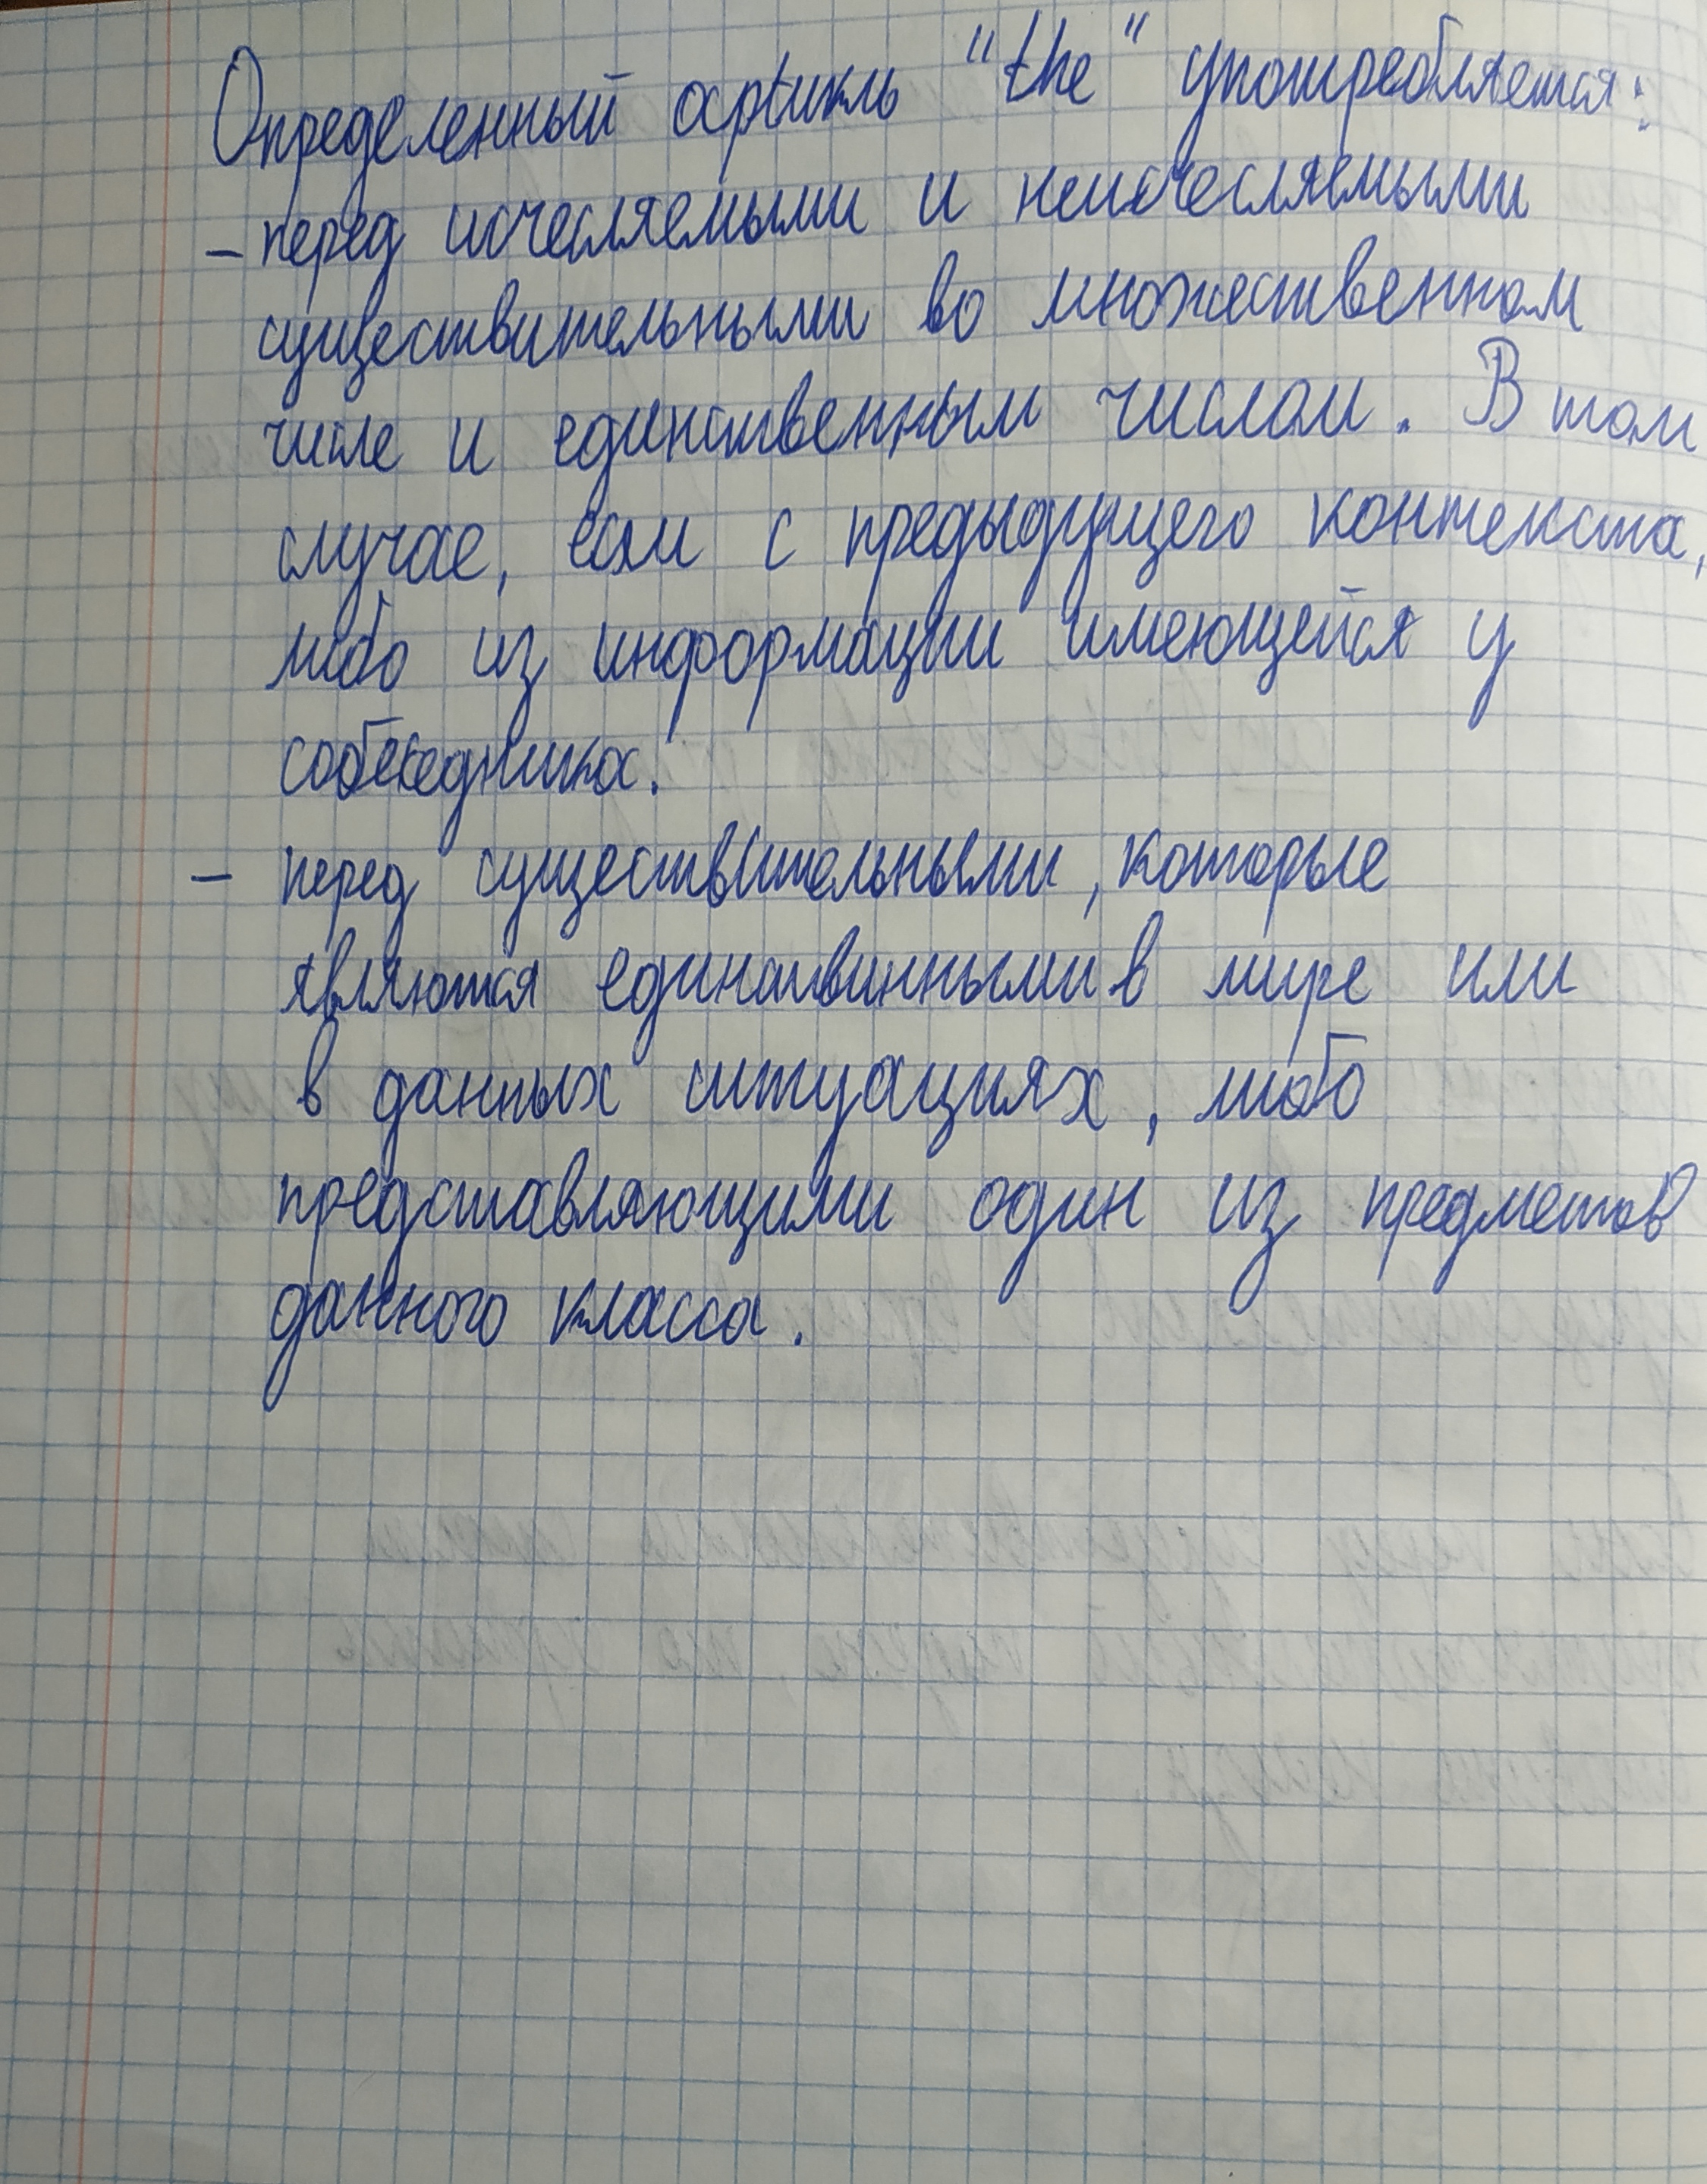 Определенный артикль "the" употребляется:
– перед исчесляемыми и неисчесляемыми
существительными во множественном
числе и единственным числом. В том
случае, если с предыдущего контекста,
либо из информации имеющейся у
собеседника.
– перед существительными, которые
являются единствинными в мире или
в данных ситуациях, либо
представляющими один из предметов
данного класса.